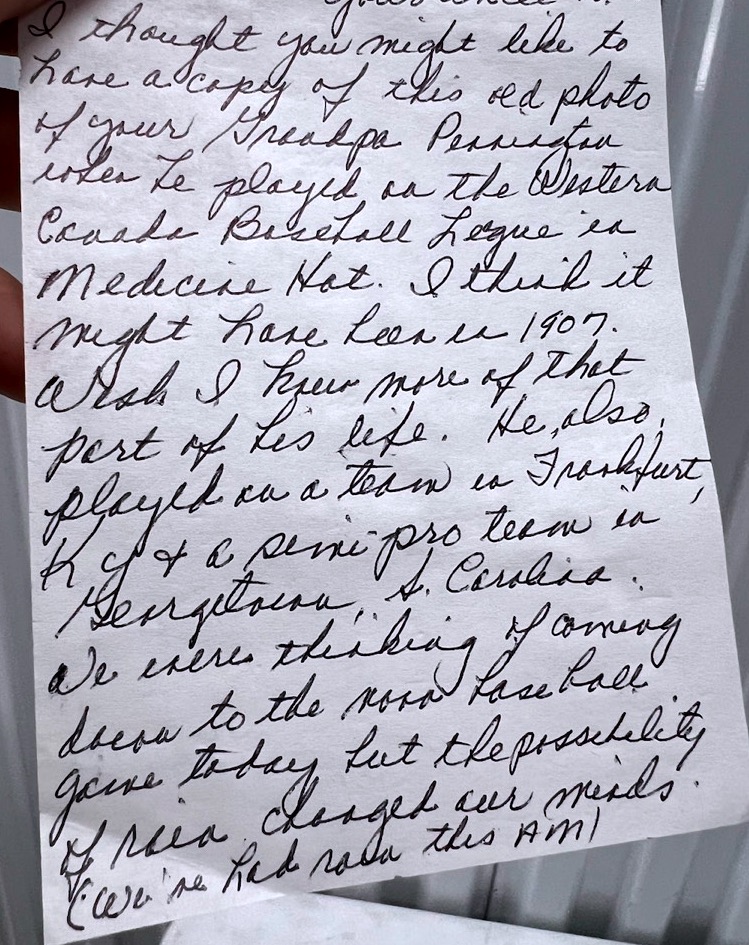 I thought you might like to
have a copy of this old photo
of your Grandpa Pennington
when he played on the Western
Canada Baseball League in
Medicine Hat. I think it
might have been in 1907.
Wish I knew more of that
part of his life. He, also,
played on a team in Frankfurt,
Ky & a semi-pro team in
Georgetown, S. Carolina.
We were thinking of coming
down to the noon baseball
game today but the possibility
of rain changed our minds.
(We've had rain this AM)